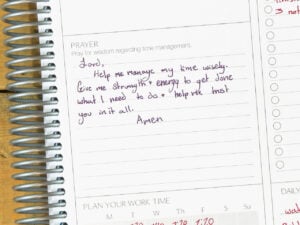 PRAYER
Pray for wisdom regarding time management.
Lord,
Help me manage my time wisely.
Give me strength + energy to get done
what I need to do + help me trust
you in it all.
Amen
PLAN YOUR WORK TIME
M T W Th F S S
DAILY